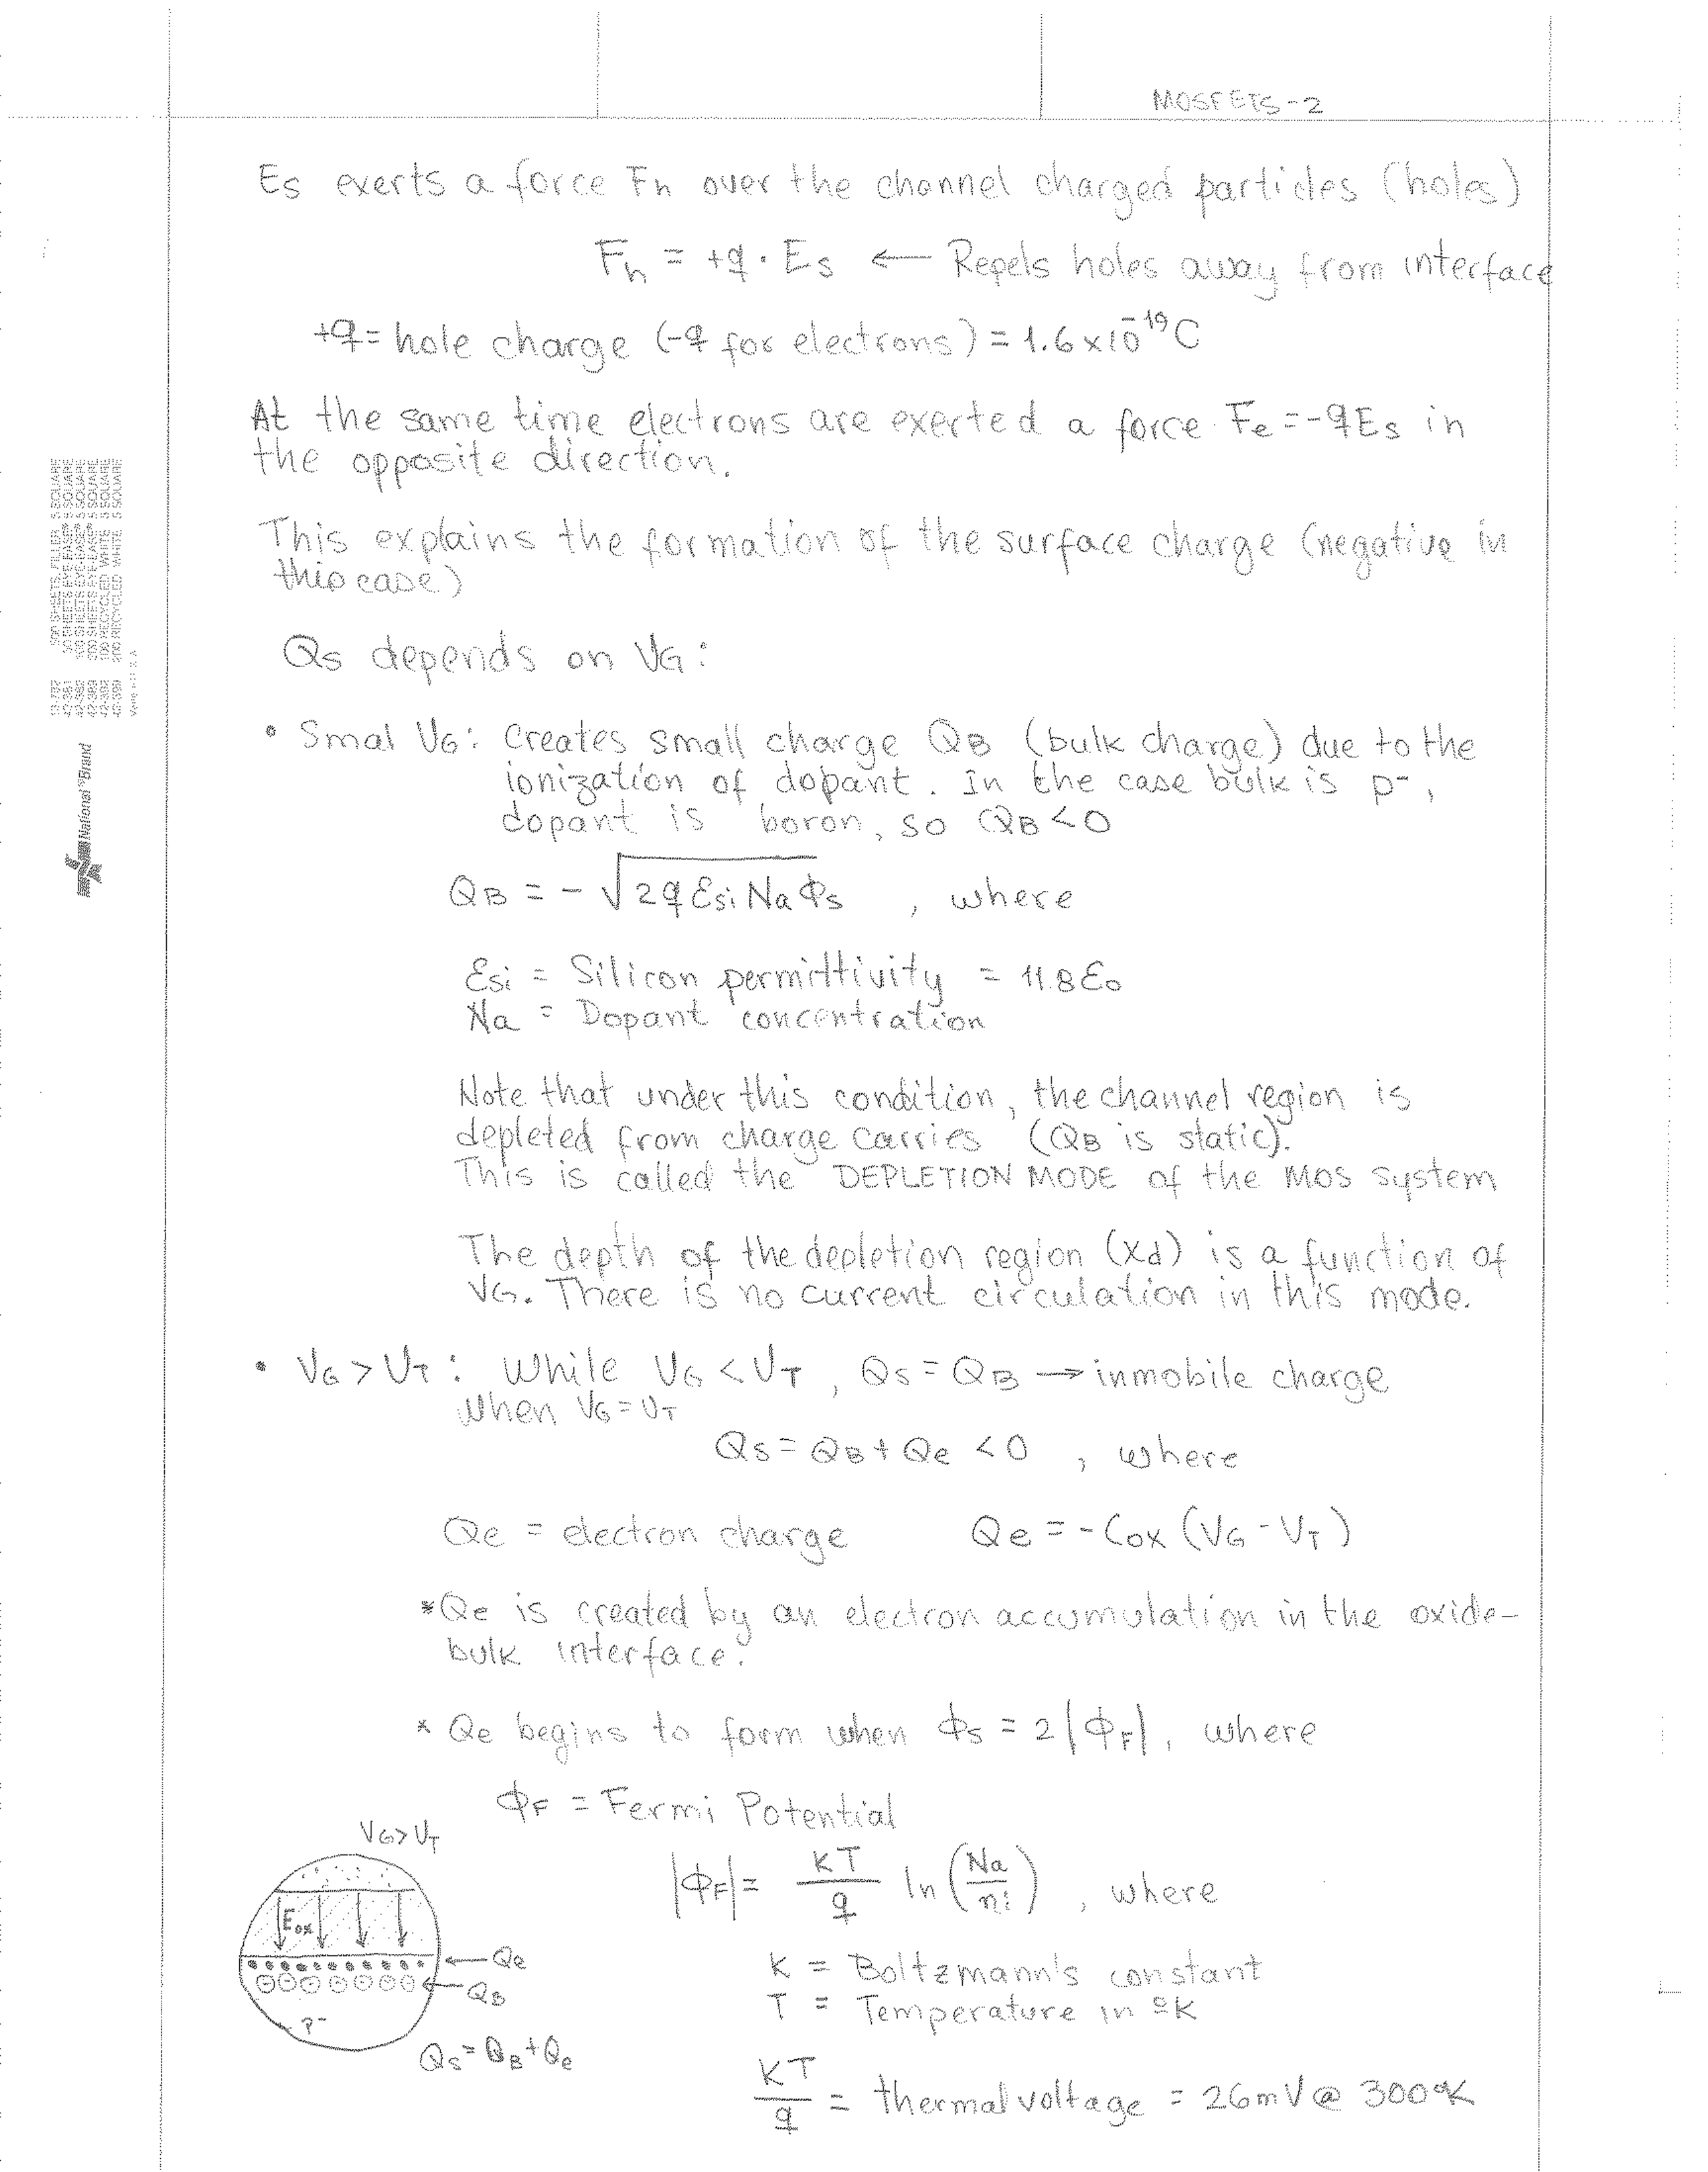 MOSFETS-2
Es exerts a force Fh over the channel charged particles (holes)
Fh = +q · Es ← Repels holes away from interface
+q = hole charge (-q for electrons) = 1.6x10⁻¹⁹C
At the same time electrons are exerted a force Fe=-qEs in
the opposite direction.
This explains the formation of the surface charge (negative in
this case)
Qs depends on VG:
• Smal VG: Creates small charge QB (bulk charge) due to the
ionization of dopant. In the case bulk is p⁻,
dopant is boron, so QB<0
QB = - √(2qεsiNaΦs) , where
εsi = Silicon permittivity = 11.8ε0
Na = Dopant concentration
Note that under this condition, the channel region is
depleted from charge carries (QB is static).
This is called the DEPLETION MODE of the MOS system
The depth of the depletion region (Xd) is a function of
VG. There is no current circulation in this mode.
• VG > VT: While VG < VT, Qs = QB → inmobile charge
When VG = VT
Qs = QB + Qe < 0 , where
Qe = electron charge Qe = -Cox (VG - VT)
*Qe is created by an electron accumulation in the oxide-
bulk interface.
* Qe begins to form when Φs = 2|ΦF|, where
ΦF = Fermi Potential
|ΦF| = KT/q ln(Na/ni) , where
K = Boltzmann's constant
T = Temperature in ºK
KT/q = thermal voltage = 26mV @ 300ºK
VG > VT
Eox
Qe
QB
p⁻
Qs = QB + Qe
National ®Brand